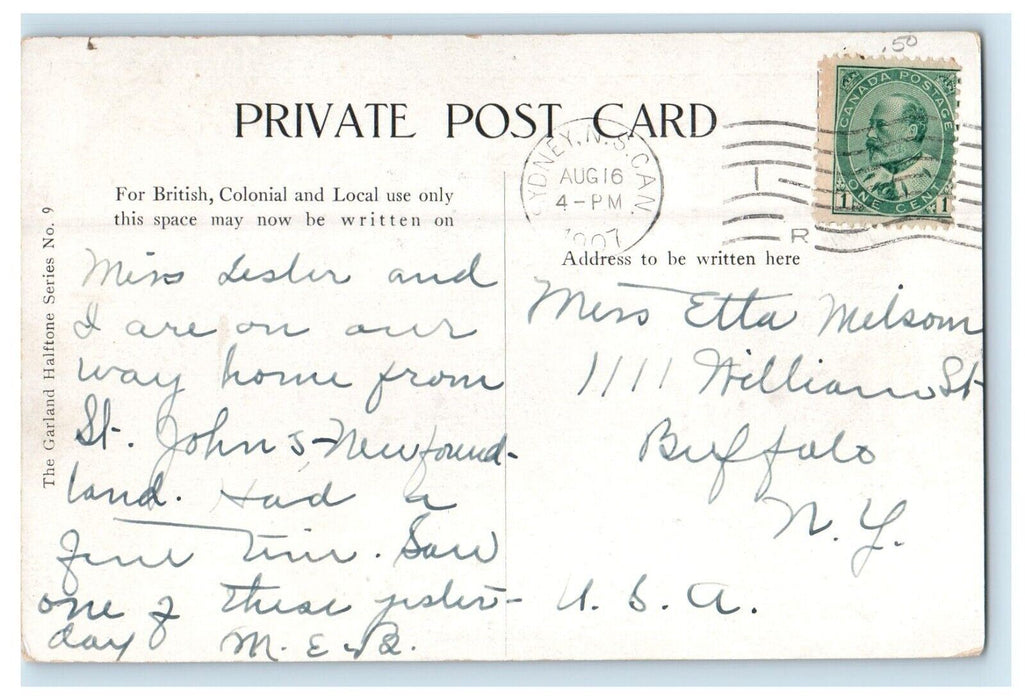 .50
PRIVATE POST CARD
CANADA POSTAGE
ONE CENT
1 1
SYDNEY, N.S. CAN.
AUG 16
4-PM
1907
R
For British, Colonial and Local use only
this space may now be written on
Address to be written here
The Garland Halftone Series No. 9
Miss Lesler and
I are on our
way home from
St. Johns-Newfound-
land. Had a
fine time. Saw
one of these yester-
day M. E. B.
Miss Etta Milsom
1111 William St
Buffalo
N. Y.
U. S. A.